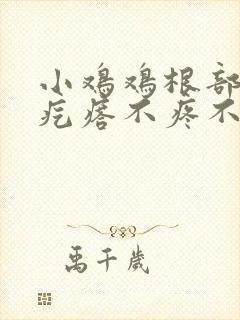 小鸡鸡根部
疙瘩不疼不
禹千岁